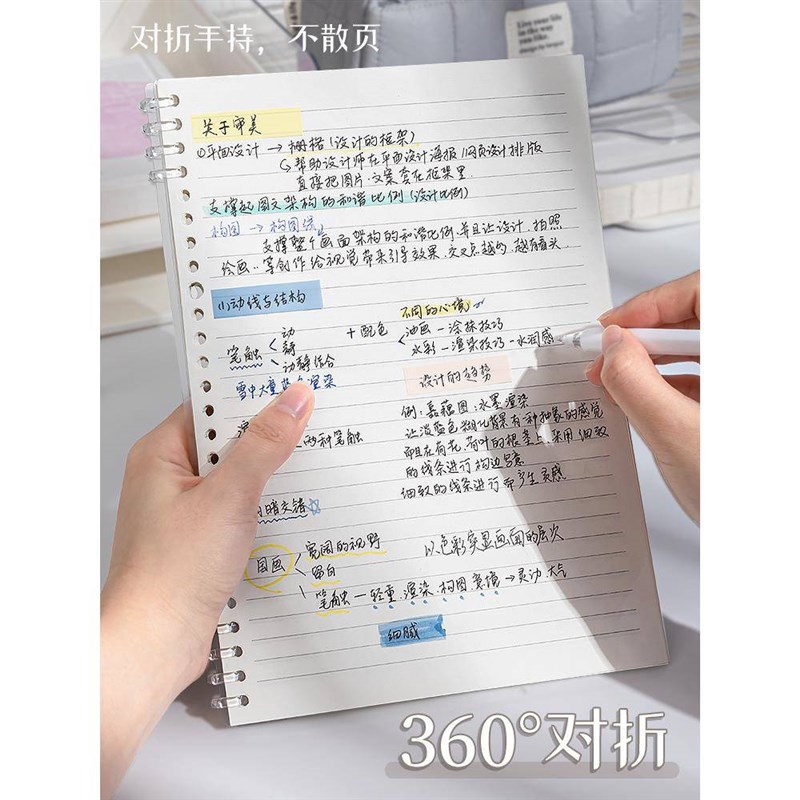 对折手持，不散页
Live your life
in the way
you like.
关于审美
①平面设计 → 栅格(设计的框架)
↳ 帮助设计师在平面设计海报/网页设计排版
直接把图片.文案套在框架里
支撑起图文架构的和谐比例(设计比例)
构图 → 构图线
支撑整个画面架构的和谐比例.并且让设计.拍照
绘画..等创作给视觉带来引导效果.交叉点越的.越有看头.
(1)动线与结构
不同的心境
笔触 < 动
静
动静结合
+ 配色 < 油画 — 涂抹技巧
水彩 — 渲染技巧 — 水润感
雪中大量蓝色渲染
设计的趋势
两种笔触
例:嘉藕图:水墨渲染
让淡蓝色湖比背景有一种抽象的感觉
而且在荷花.荷叶的根茎上采用细致
的线条进行构边写意
细致的线条进行而产生灵感
暗交错
国画 < 宽阔的视野
留白
笔触 — 轻重.渲染.构图.意境 → 灵动.大气
以色彩突显画面的层次
细腻
360°对折